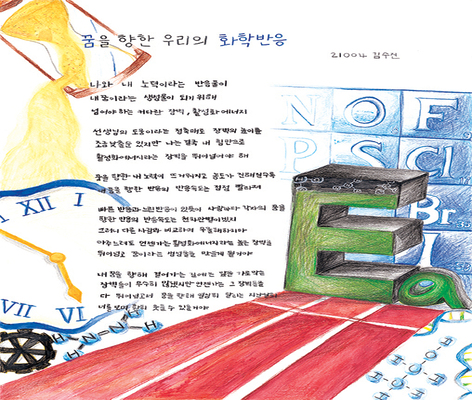 꿈을 향한 우리의 화학반응
21004 김수선
나와 내 노력이라는 반응물이
내 꿈이라는 생성물이 되기 위해
넘어야 하는 커다란 장벽, 활성화 에너지
선생님의 도움이라는 정촉매도 장벽의 높이를
조금 낮출순 있지만 나는 결국 내 힘만으로
활성화에너지라는 장벽을 뛰어넘어야 해
꿈을 향한 내 노력에 뜨거워지고 농도가 진해질수록
꿈을 향한 반응의 반응속도는 점점 빨라져
빠른 반응과 느린반응이 있듯이 사람마다 각자의 꿈을
향한 반응의 반응속도는 천차만별이겠지
그러니 다른 사람과 비교하며 우울해하지마
아주 느려도 언젠가는 활성화에너지라는 높은 장벽을
뛰어넘고 꿈이라는 생성물을 만들게 될거야
내 꿈을 향해 걸어가는 길에는 길을 가로막는
장벽들이 무수히 많겠지만 언젠가는 그 장벽들을
다 뛰어넘고서 꿈을 향해 열심히 달리는
너를 보며 함께 웃을수 있을거야
N O F
P S Cl
Br
I
Ea
XII I
VII VI
H H
H-N=N-H